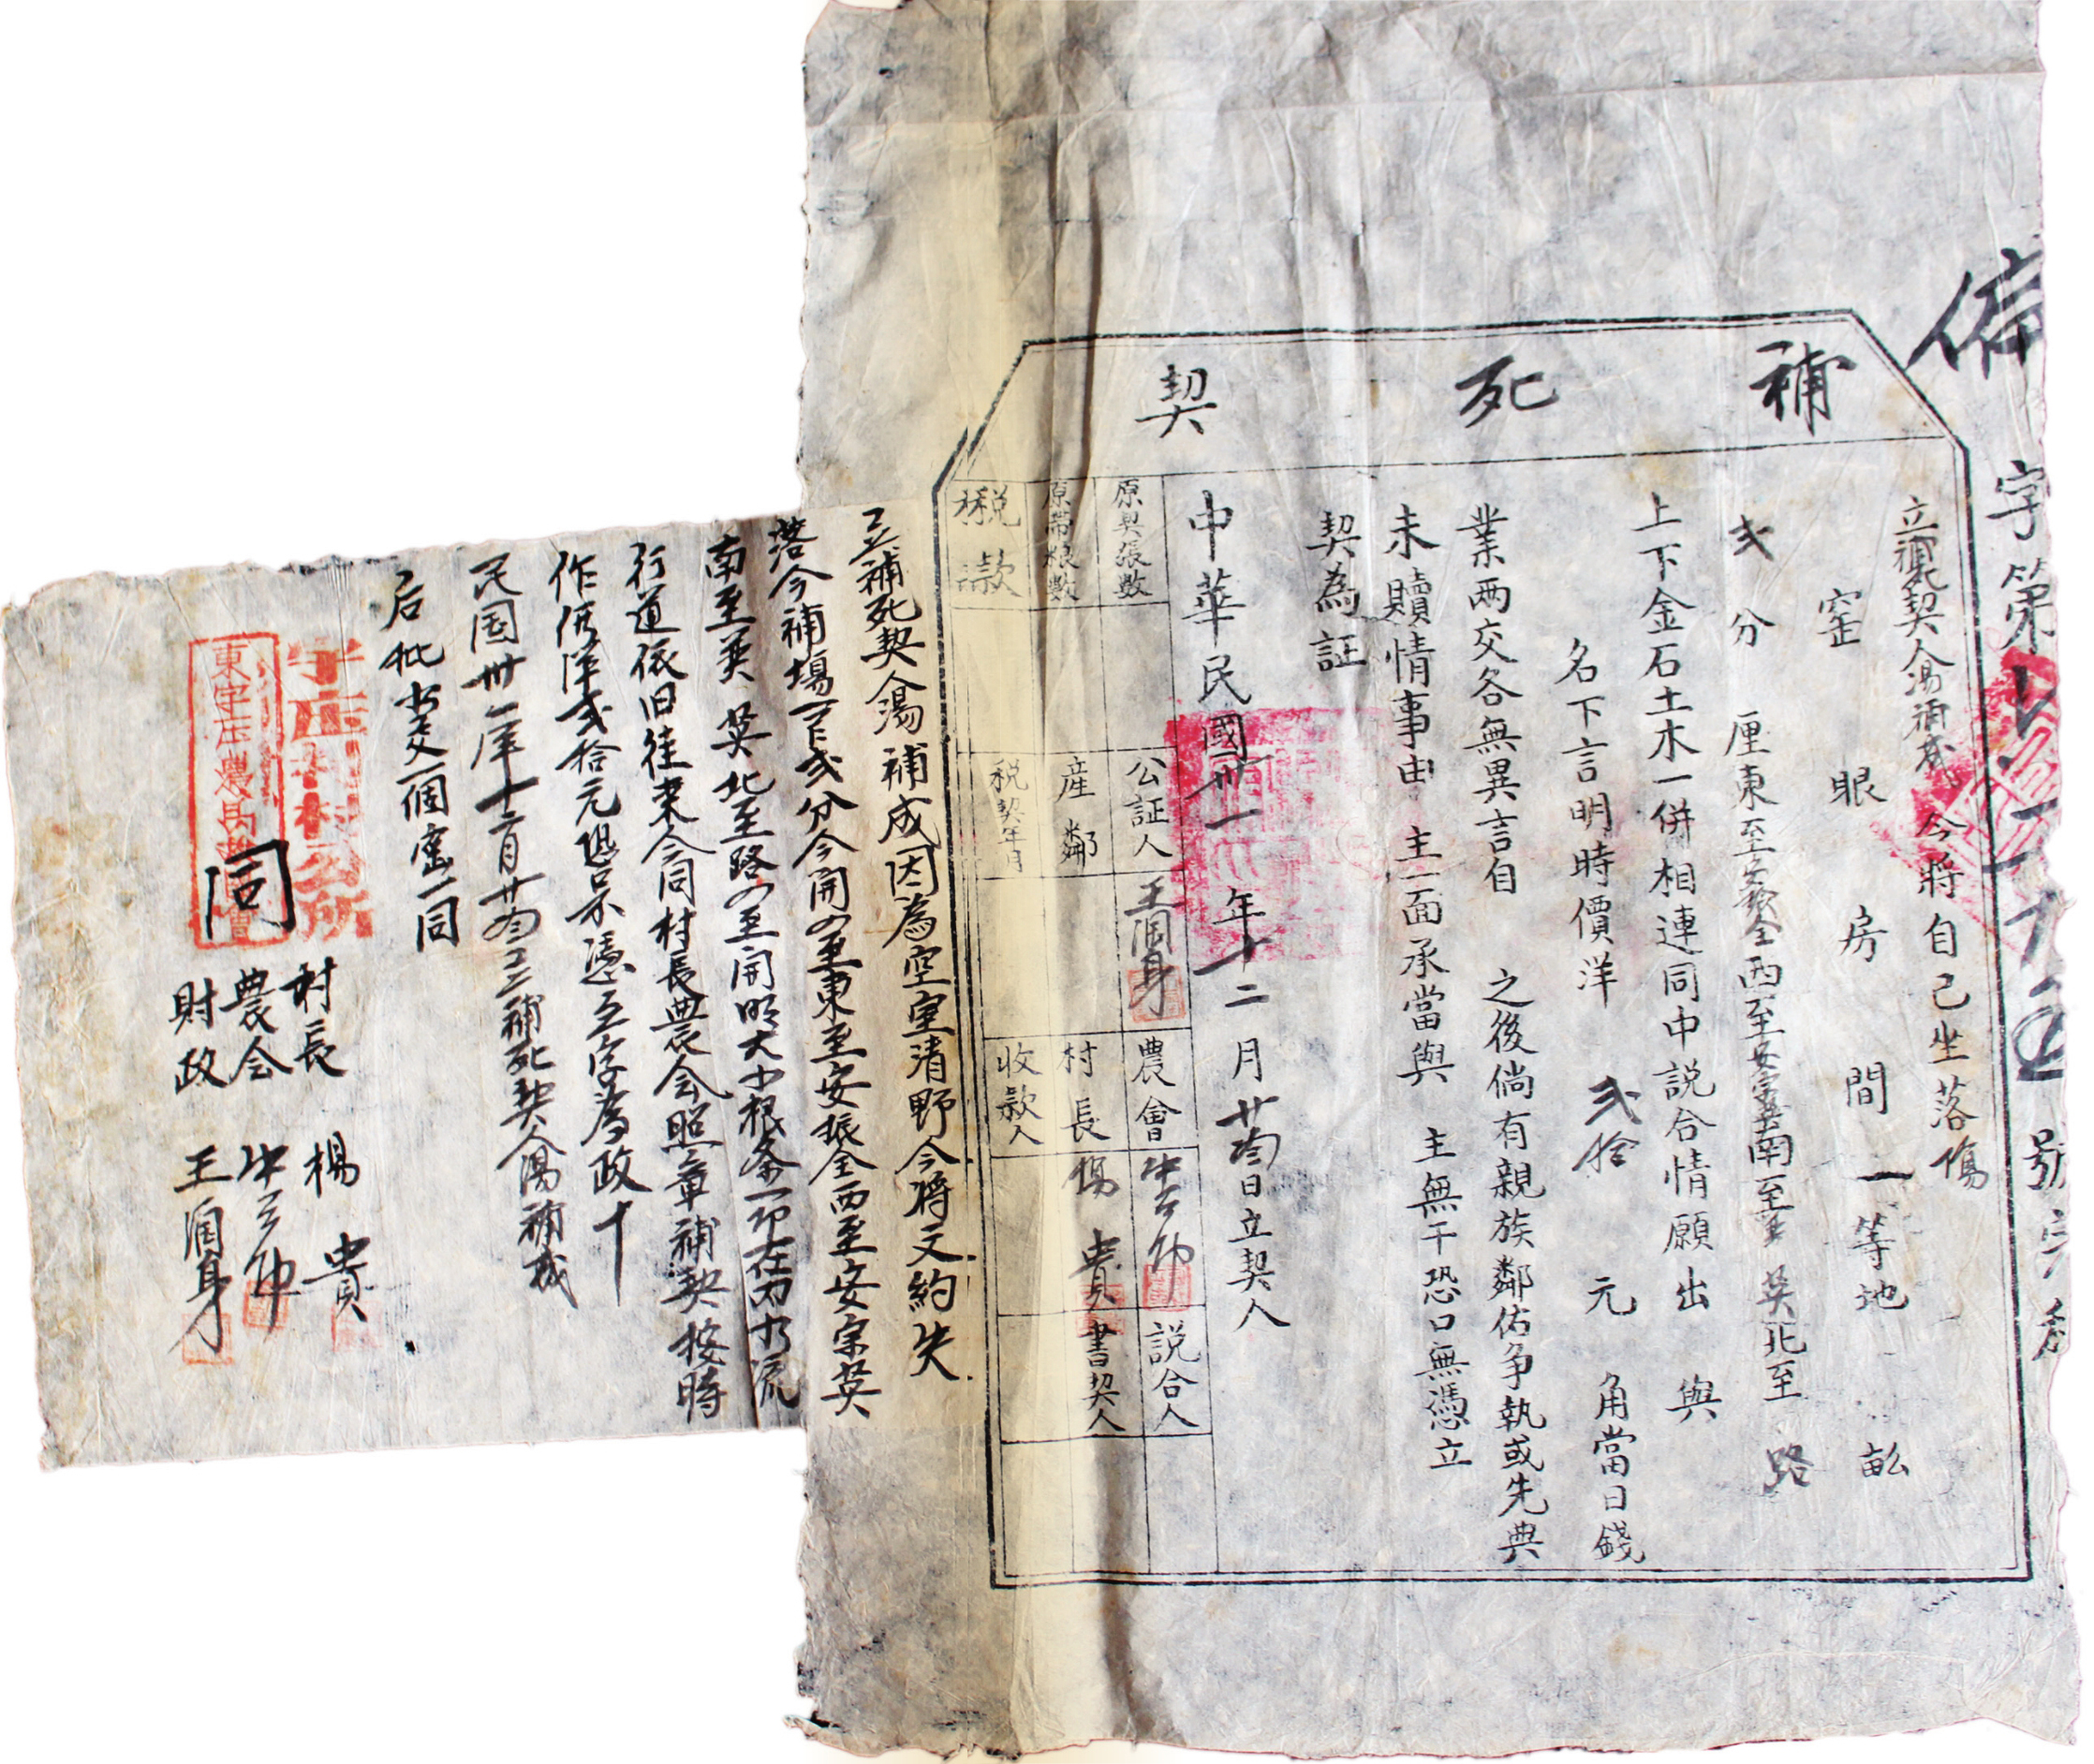 偏字第
號
補死契
立補死契人湯補成今將自己坐落場
窑眼房間一等地畝
弍分厘東至安振全西至安宗英南至英北至路
上下金石土木一併相連同中説合情願出與
名下言明時價洋弍拾元角當日錢
業兩交各無異言自之後倘有親族鄰佑争執或先典
未贖情事由主一面承當與主無干恐口無憑立
契為証
中華民國卅一年十二月廿四日立契人
原契張數
公証人
王润身
農會
説合人
原帶粮數
産鄰
村長
楊貴
書契人
税款
税契年月
收款人
立補死契人湯補成因為空室清野今將文約失
落今補場一丁弍分今開四至東至安振全西至安宗英
南至英北至路四至開明大小根条一切在内水流
行道依旧往来今同村長農会照章補契按時
作價洋弍拾元恐口不憑立字為政十
民国卅一年十二月廿四立補死契人湯補成
后批書交一個窑一同
村公所
同
村長楊貴
農会
財政王润身